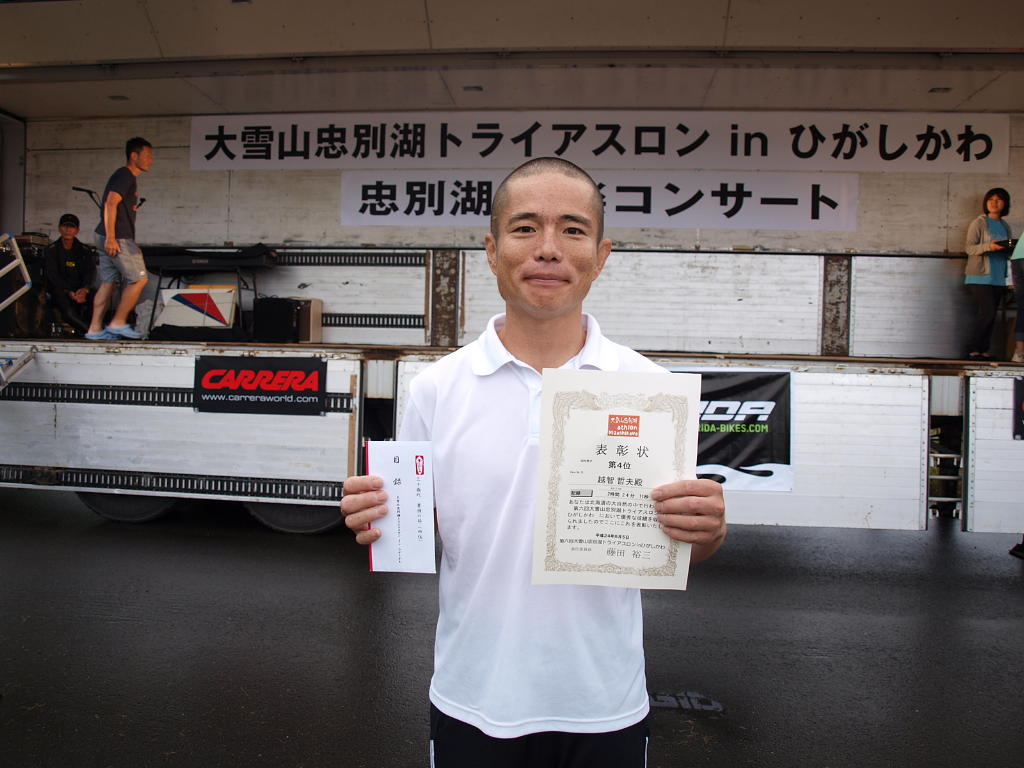 大雪山忠別湖トライアスロン in ひがしかわ
忠別湖 コンサート
CARRERA
www.carreraworld.com
RIDA-BIKES.COM
目 録
表彰状
第4位
越智 哲夫殿
記録 2時間 24分 11秒
あなたは北海道の大自然の中で行わ
第六回大雪山忠別湖トライアスロン
ひがしかわ において優秀な成績を収
られましたのでここにこれを表彰いたし
ます。
平成24年8月5日
第六回大雪山忠別湖トライアスロンinひがしかわ
藤田 裕三